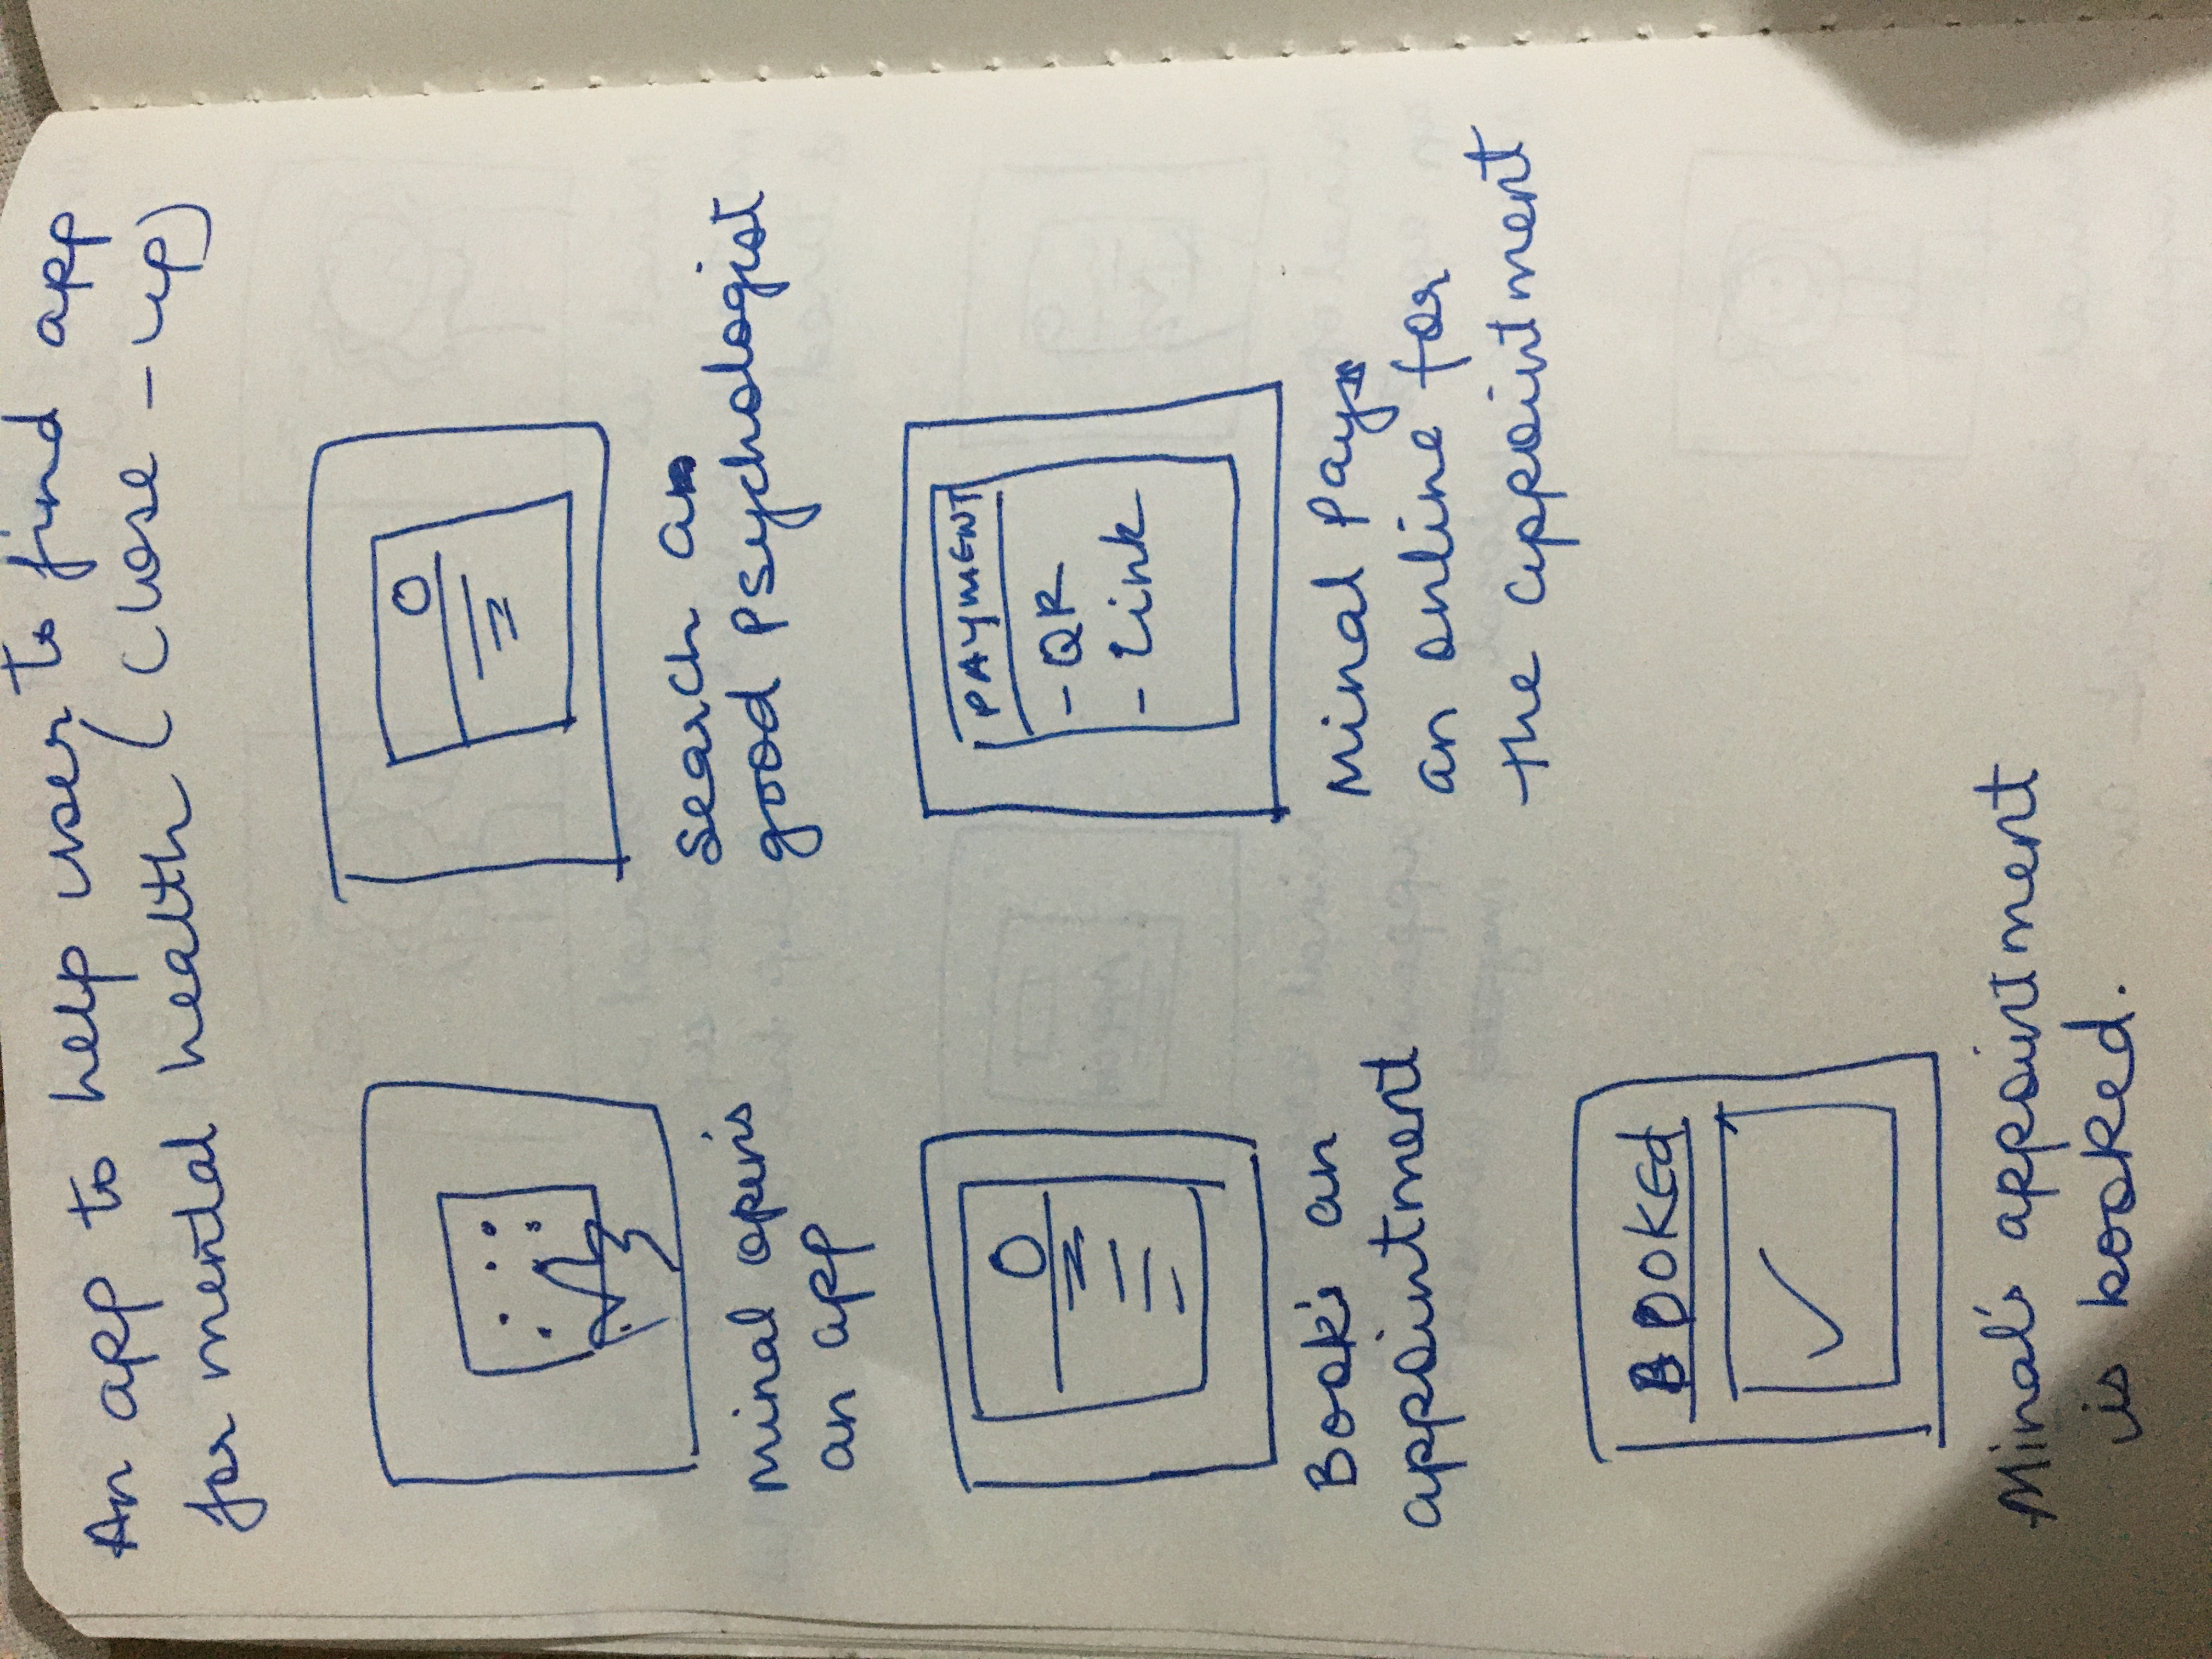 An app to help user to find app
for mental health (close-up)
Minal open's
an app
search a
good psychologist
Book's an
appointment
PAYMENT
- QR
- Link
Minal Pays
an online for
the appointment
BOOKEd
Minal's appointment
is booked.